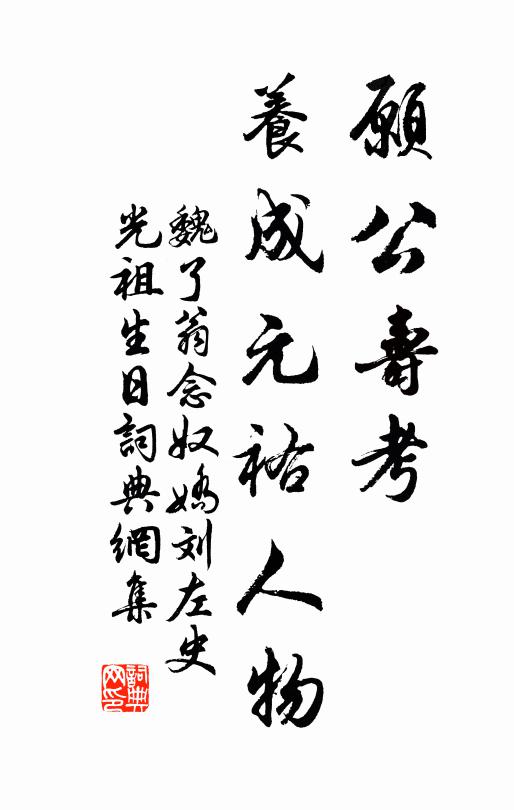 願公壽考
養成元祐人物
魏了翁念奴嬌刘左史
光祖生日詞典網集
詞典
网印